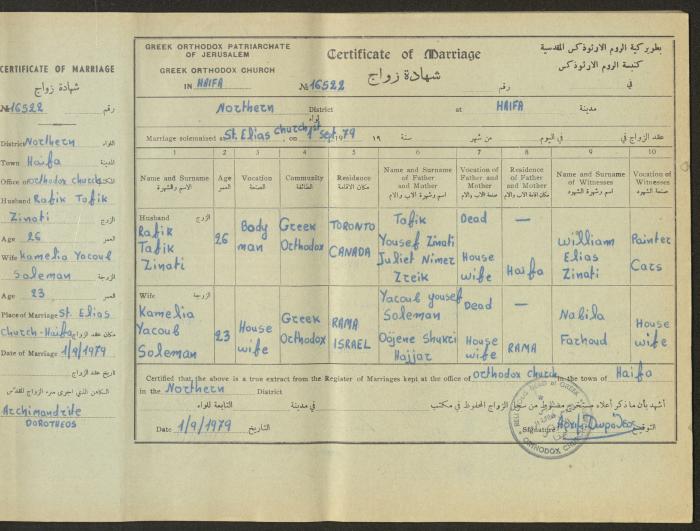 CERTIFICATE OF MARRIAGE
شهادة زواج
№ 16522 رقم
District Northern اللواء
Town Haifa المدينة
Office of orthodox church
Husband Rafik Tafik
Zinati الزوج
Age 26 العمر
Wife Kamelia Yacoub
Soleman الزوجة
Age 23 العمر
Place of Marriage St. Elias
Church-Haifa مكان عقد الزواج
Date of Marriage 1/9/1979
تاريخ عقد الزواج
الكاهن الذي اجرى سر الزواج المقدس
Archimandrite
DOROTHEOS
GREEK ORTHODOX PATRIARCHATE
OF JERUSALEM
GREEK ORTHODOX CHURCH
IN HAIFA
Certificate of Marriage
شهادة زواج
№ 16522 رقم
بطريركية الروم الارثوذكس المقدسية
كنيسة الروم الارثوذكس
في
Northern District لواء at HAIFA مدينة
Marriage solemnised at St. Elias Church, on 1st Sept. 1979 ١٩ سنة من شهر في اليوم عقد الزواج في
1 2 3 4 5 6 7 8 9 10
Name and Surname الاسم والشهرة
Age العمر
Vocation الصنعة
Community الطائفة
Residence مكان الاقامة
Name and Surname of Father and Mother اسم وشهرة الاب والام
Vocation of Father and Mother صنعة الاب والام
Residence of Father and Mother مكان اقامة الاب والام
Name and Surname of Witnesses اسم وشهرة الشهود
Vocation of Witnesses صنعة الشهود
Husband الزوج
Rafik Tafik Zinati
26
Body man
Greek Orthodox
TORONTO CANADA
Tafik Yousef Zinati
Juliet Nimer Zreik
Dead
House wife
—
Haifa
William Elias Zinati
Painter Cars
Wife الزوجة
Kamelia Yacoub Soleman
23
House wife
Greek Orthodox
RAMA ISRAEL
Yacoub yousef Soleman
Odjene Shukri Hajjar
Dead
House wife
—
RAMA
Nabila Farhoud
House wife
Certified that the above is a true extract from the Register of Marriages kept at the office of orthodox church in the town of Haifa
in the Northern District
أشهد بأن ما ذكر أعلاه مستخرج مضبوط من سجل الزواج المحفوظ في مكتب
في مدينة التابعة للواء
Date 1/9/1979 التاريخ
Signature التوقيع
ORTHODOX CHURCH